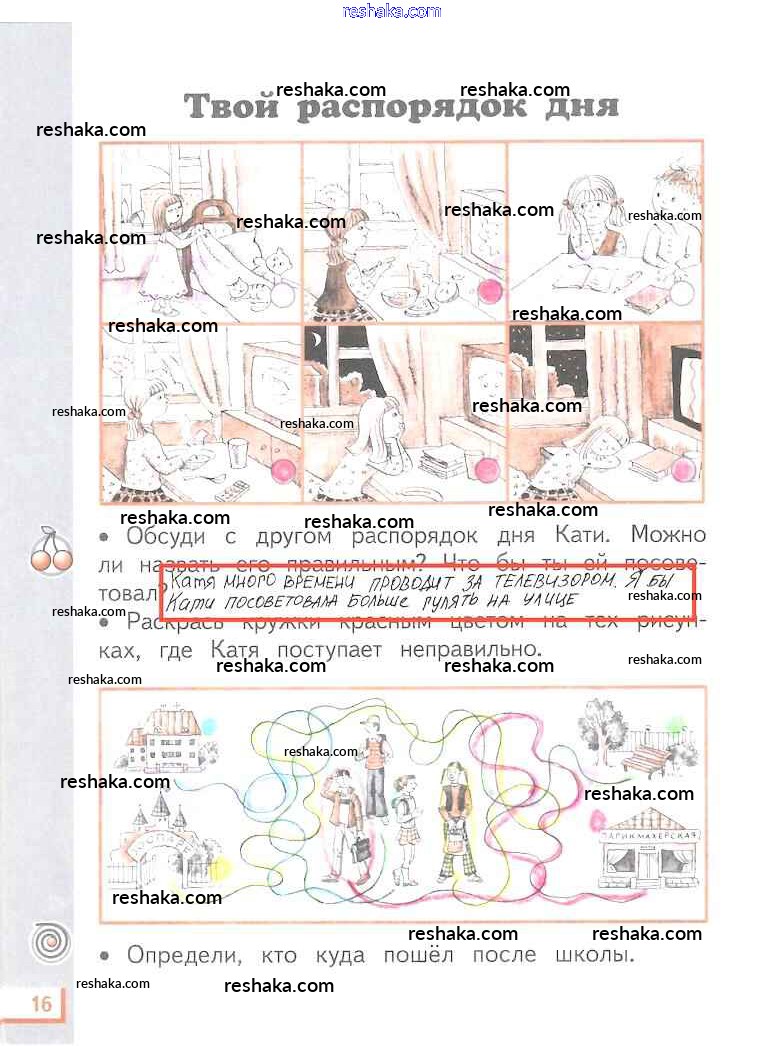 reshaka.com
reshaka.com
reshaka.com
Твой распорядок дня
reshaka.com
reshaka.com
reshaka.com
reshaka.com
reshaka.com
reshaka.com
reshaka.com
reshaka.com
reshaka.com
reshaka.com
reshaka.com
reshaka.com
reshaka.com
reshaka.com
• Обсуди с другом распорядок дня Кати. Можно
ли назвать его правильным? Что бы ты ей посове-
товал?
Катя много времени проводит за телевизором. Я бы
Кати посоветовала больше гулять на улице
reshaka.com
reshaka.com
• Раскрась кружки красным цветом на тех рисун-
ках, где Катя поступает неправильно.
reshaka.com
reshaka.com
reshaka.com
reshaka.com
reshaka.com
reshaka.com
reshaka.com
ПАРИКМАХЕРСКАЯ
ЗООПАРК
reshaka.com
reshaka.com
reshaka.com
• Определи, кто куда пошёл после школы.
reshaka.com
reshaka.com
16